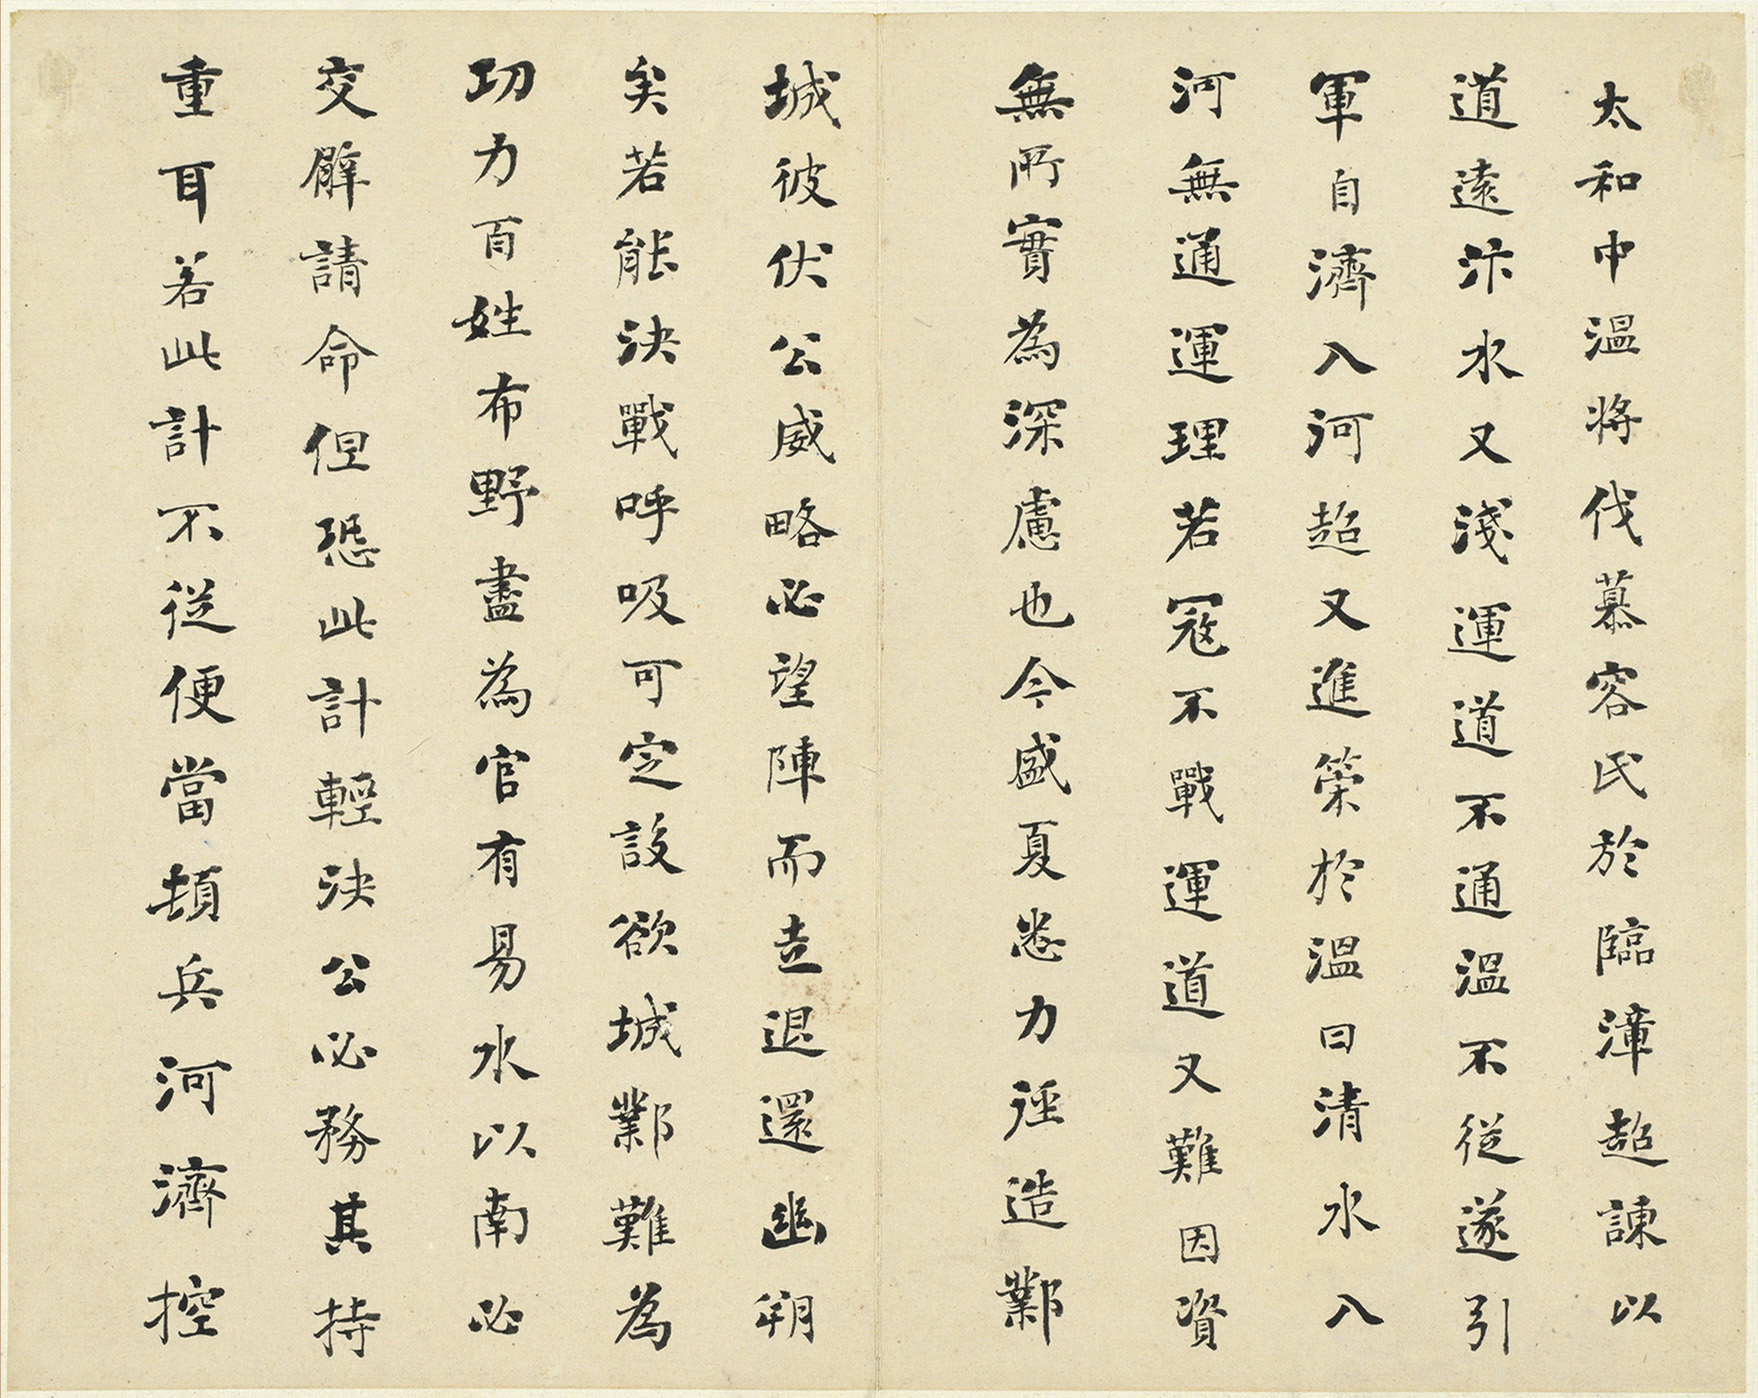 太和中温将伐慕容氏於臨漳超諫以
道遠汴水又淺運道不通温不從遂引
軍自濟入河超又進策於温曰清水入
河無通運理若寇不戰運道又難因資
無所實為深慮也今盛夏悉力徑造鄴
城彼伏公威略必望陣而走退還幽朔
矣若能決戰呼吸可定設欲城鄴難為
功力百姓布野盡為官有易水以南必
交臂請命但恐此計輕決公必務其持
重耳若此計不從便當頓兵河濟控